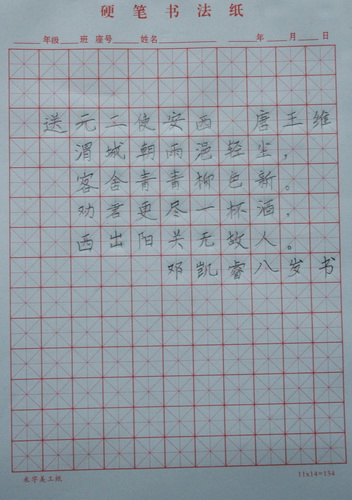 硬笔书法纸
年级 班 座号 姓名 年 月 日
送元二使安西 唐王维
渭城朝雨浥轻尘，
客舍青青柳色新。
劝君更尽一杯酒，
西出阳关无故人。
邓凯睿八岁书
11x14=154